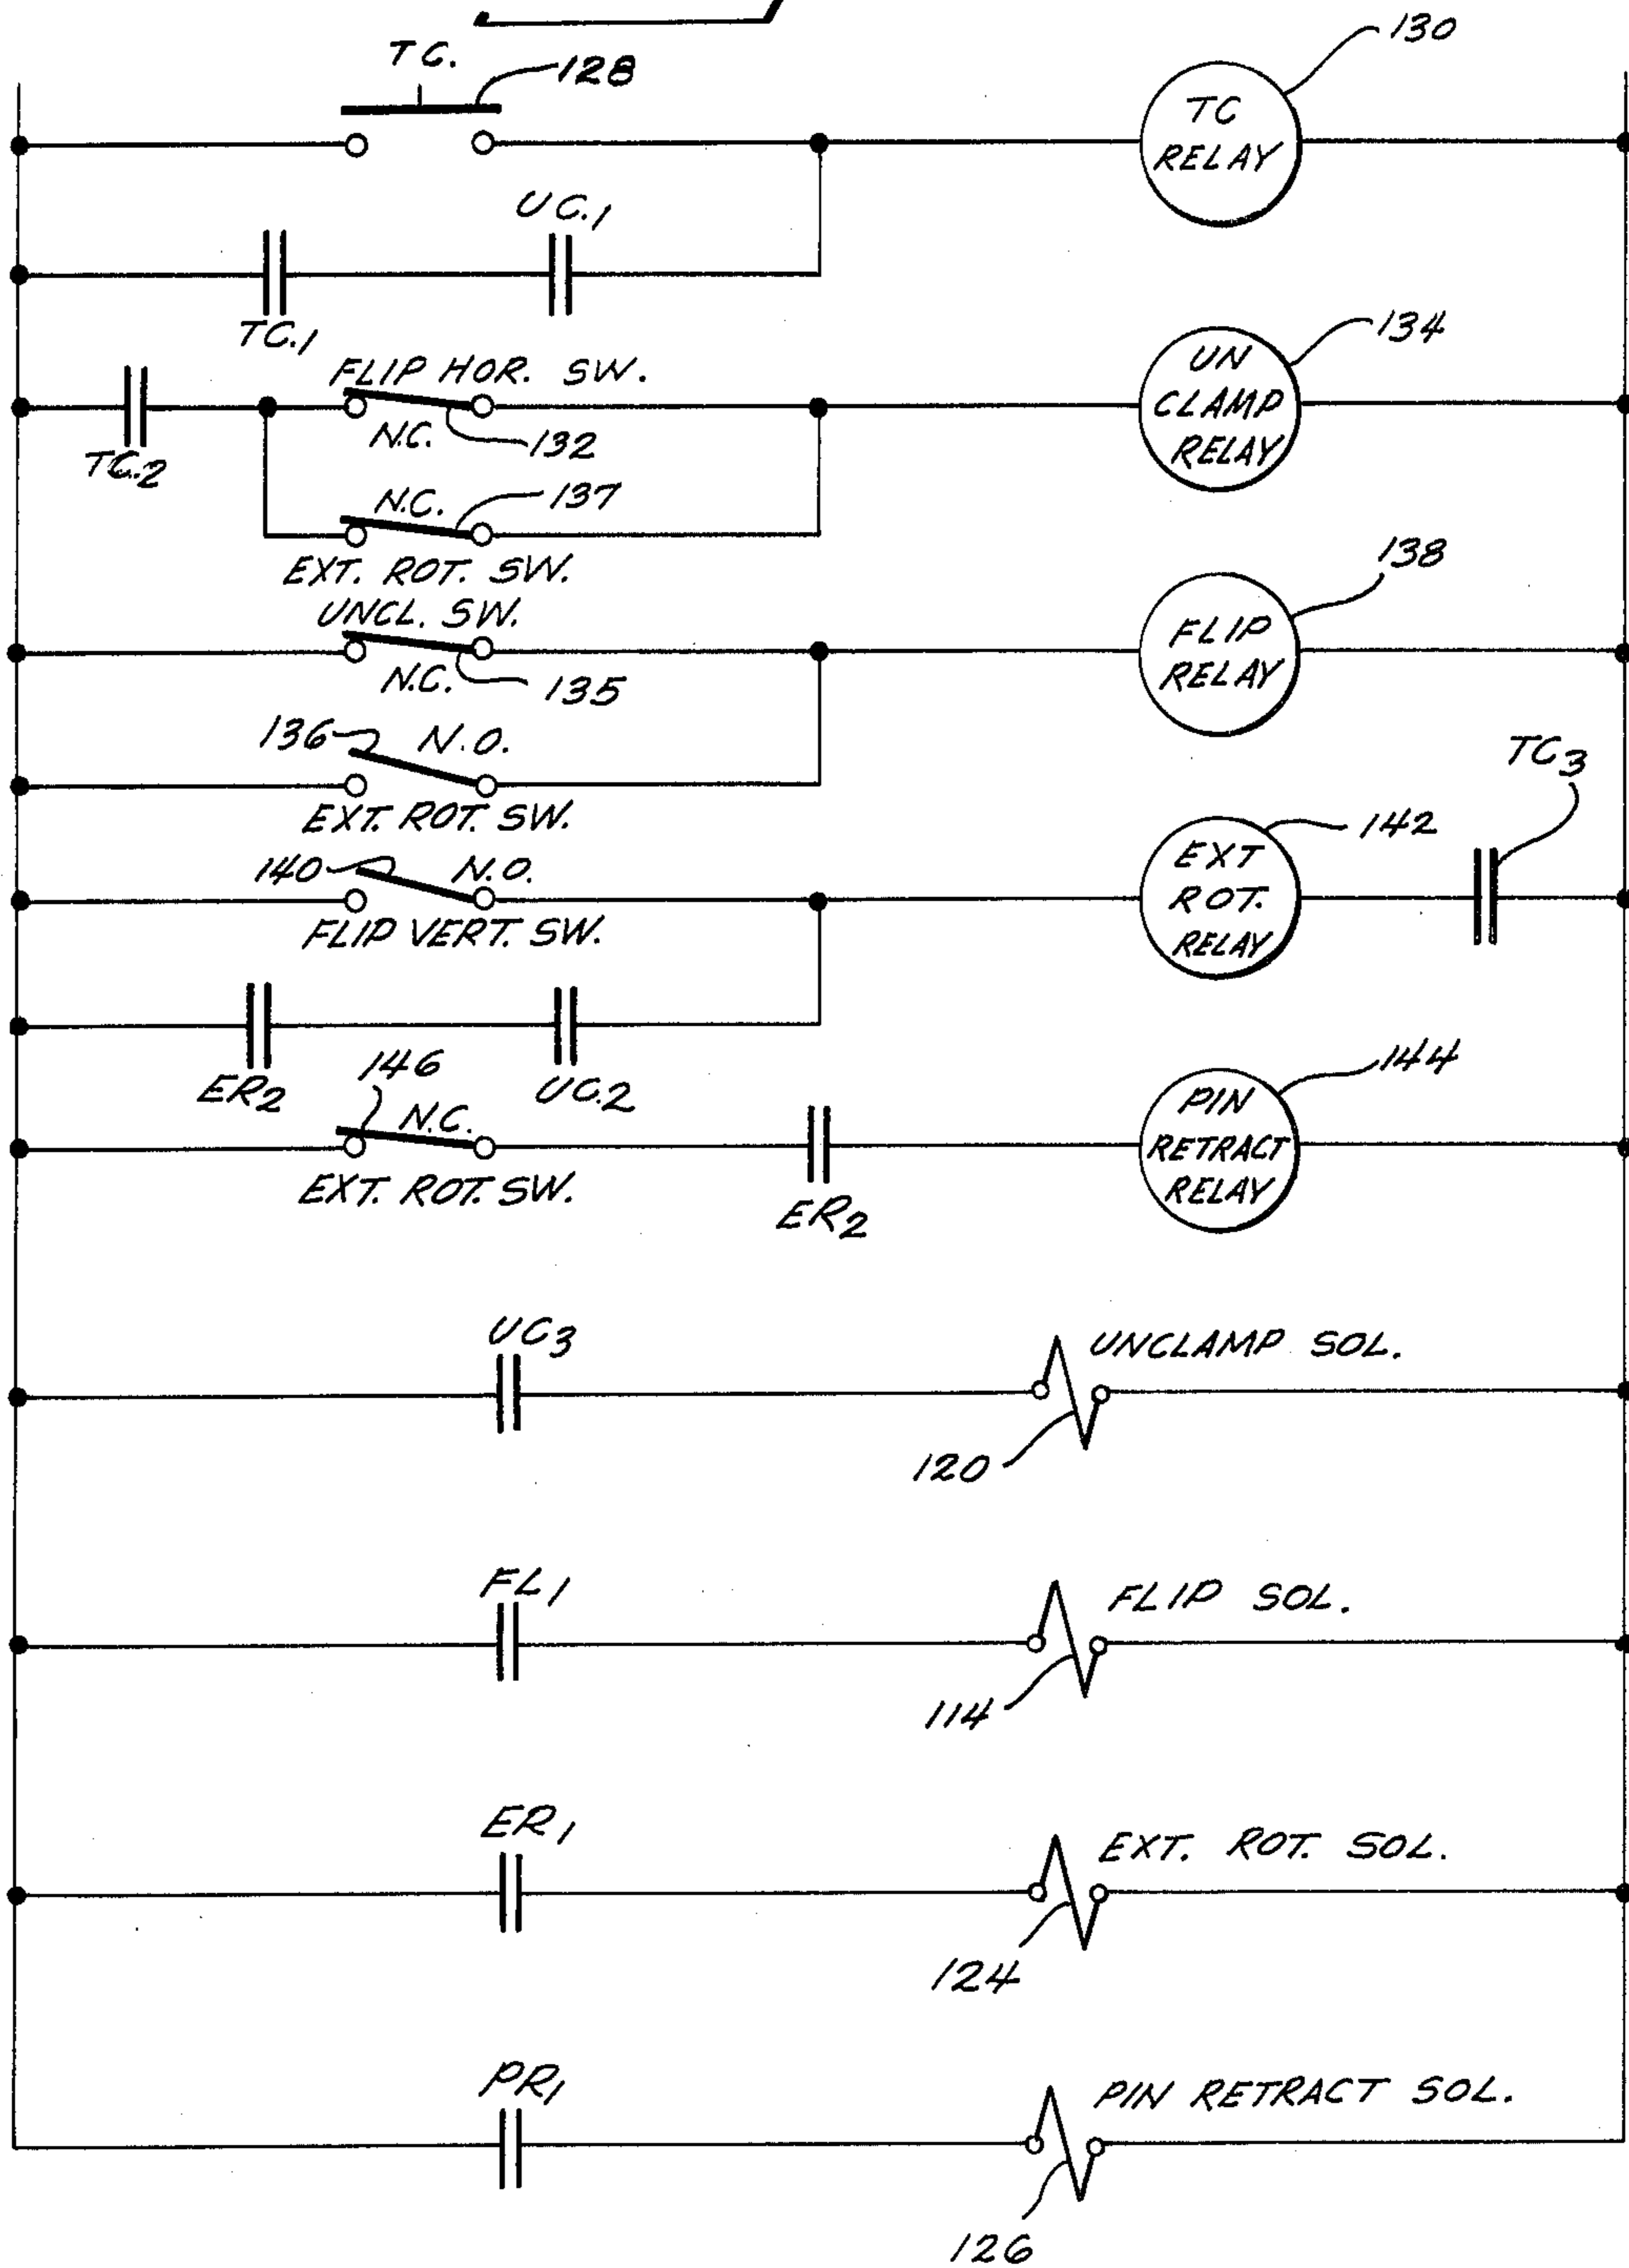 T C.
128
130
TC
RELAY
UC.1
TC.1
134
FLIP HOR. SW.
UN
CLAMP
RELAY
N.C.
132
TC.2
N.C.
137
EXT. ROT. SW.
138
UNCL. SW.
FLIP
RELAY
N.C.
135
136
N.O.
TC3
EXT. ROT. SW.
142
140
N.O.
EXT
ROT.
RELAY
FLIP VERT. SW.
ER2
146
UC.2
144
N.C.
PIN
RETRACT
RELAY
EXT. ROT. SW.
ER2
UC3
UNCLAMP SOL.
120
FL1
FLIP SOL.
114
ER1
EXT. ROT. SOL.
124
PR1
PIN RETRACT SOL.
126